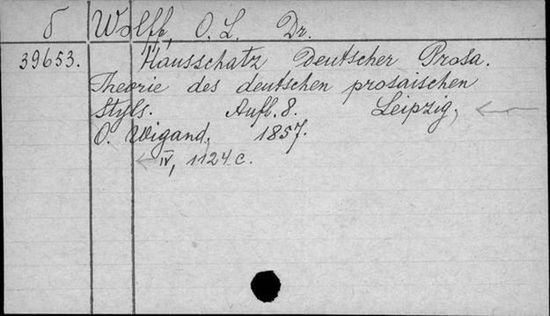 б Wolff, O. L. Dr.
39653. Hausschatz Deutscher Prosa.
Theorie des deutschen prosaischen
Styls. Aufl. 8. Leipzig,
O. Wigand, 1857.
IV, 1124 c.